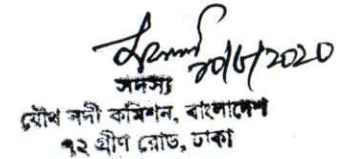 ২০/৮/2020
সদস্য
যৌথ নদী কমিশন, বাংলাদেশ
৭২ গ্রীণ রোড, ঢাকা